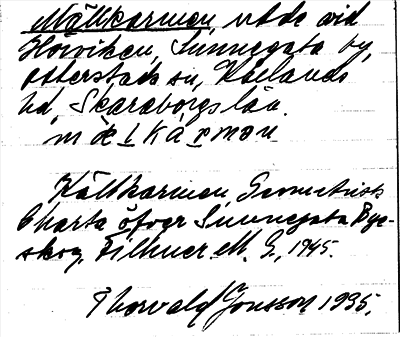 Mällkarmen, udde vid
Hovviken, Sunnegata by,
Otterstads sn, Kållands
hd, Skaraborgs län.
mälkarmən
Källkarmen, Geometrisk
Charta öfver Sunnegata By
skog, M. G., 1945.
Thorvald Jonsson 1935.